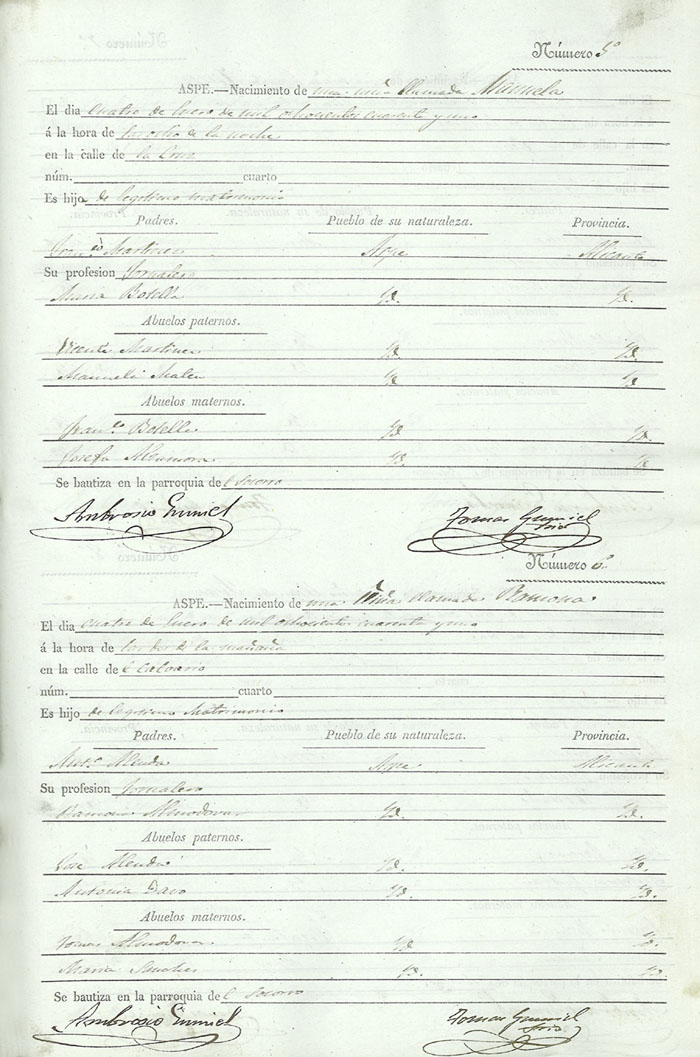 Número 5º
ASPE.—Nacimiento de una niña llamada Manuela
El dia cuatro de Enero de mil ochocientos cuarenta y uno
á la hora de las ocho de la noche
en la calle de la Cruz
núm. cuarto
Es hijo de legitimo matrimonio
Padres. Pueblo de su naturaleza. Provincia.
Franco Martinez Aspe Alicante
Su profesion Jornalero
Maria Botella Yd. Yd.
Abuelos paternos.
Vicente Martinez Yd. Yd.
Manuela Yd. Yd.
Abuelos maternos.
Franco Botella Yd. Yd.
Josefa Yd. Yd.
Se bautiza en la parroquia de l Socorro
Ambrosio Gumiel Tomas Gumiel
Srio
Número 6º
ASPE.—Nacimiento de una Niña llamada Ramona
El dia cuatro de Enero de mil ochocientos cuarenta y uno
á la hora de las dos de la mañana
en la calle de l Calvario
núm. cuarto
Es hijo de legitimo Matrimonio
Padres. Pueblo de su naturaleza. Provincia.
Anto Alenda Aspe Alicante
Su profesion Jornalero
Ramona Almodovar Yd. Yd.
Abuelos paternos.
Jose Alenda Yd. Yd.
Antonia Davo Yd. Yd.
Abuelos maternos.
Tomas Almodovar Yd. Yd.
Maria Sanchez Yd. Yd.
Se bautiza en la parroquia de l Socorro
Ambrosio Gumiel Tomas Gumiel
Srio